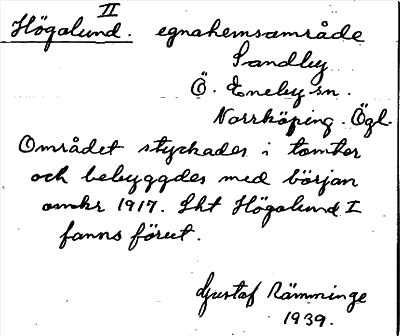 II
Högalund. egnahemsområde
Sandby
Ö. Eneby sn.
Norrköping. Ögl.
Området styckades i tomter
och bebyggdes med början
omkr 1917. Skt Högalund I
fanns förut.
Gustaf Rämminge
1939.